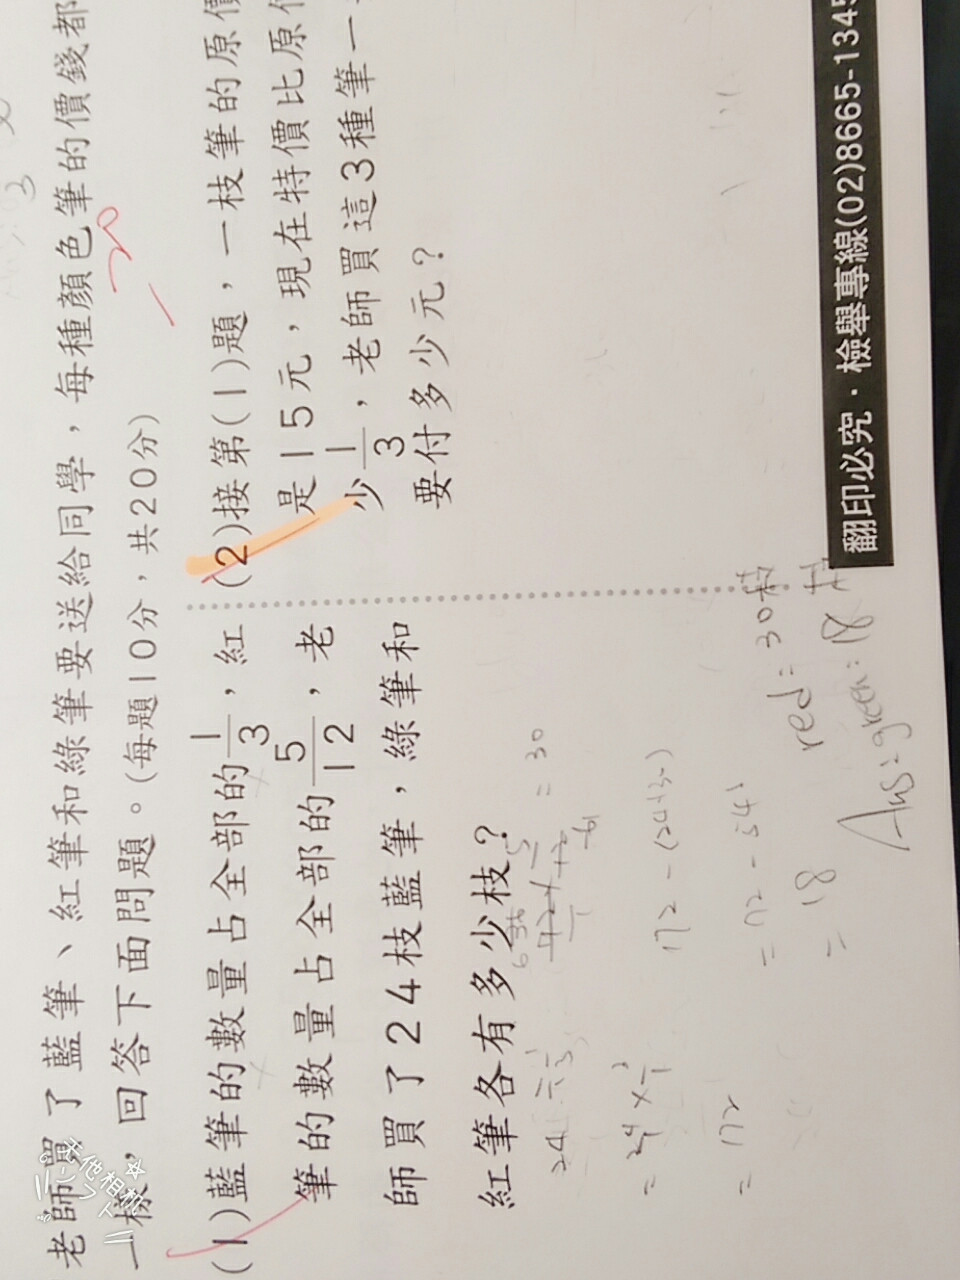 老師買了藍筆、紅筆和綠筆要送給同學,每種顏色筆的價錢都
一樣,回答下面問題。(每題10分,共20分)
(1)藍筆的數量占全部的1/3,紅
筆的數量占全部的5/12,老
師買了24枝藍筆,綠筆和
紅筆各有多少枝?
24÷1/3
=24×3/1
=72
=30
72-(24+30)
=72-54
=18
red=30枝
Ans:green:18枝
(2)接第(1)題,一枝筆的原
是15元,現在特價比原
少1/3,老師買這3種筆一
要付多少元?
翻印必究·檢舉專線(02)8665-134